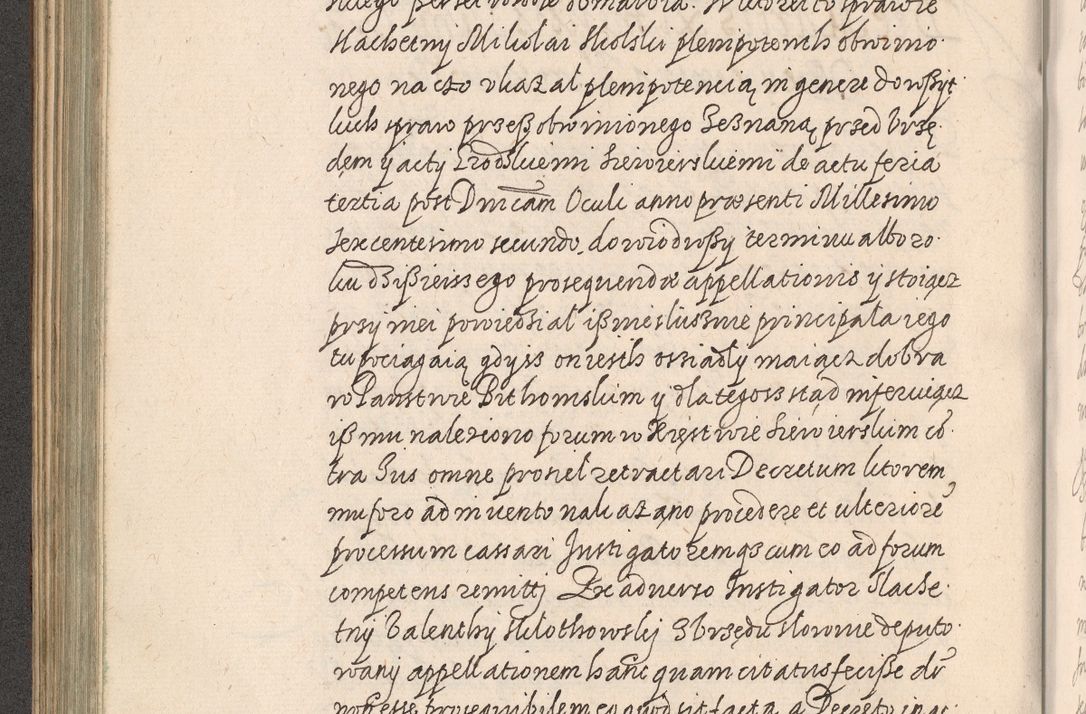 Slachetny Mikołai Skolski plenipotenth obwinio
nego na czo ukazał plenipotencią in genere do wßyt
kich spraw przeß obwinionego Zeznaną przed Vrzę
dem y acty Grodskiemi Siewierskiemi de actu feria
tertia post Dnicam Oculi anno præsenti Millesimo
Sexcentesimo secundo, dowiodwßy terminu alboro
ku dzißieissego prosequendæ appellationis y stoiącz
przy niei powiedział iß niesluśnie principała iego
tu pociągaią gdyss on iesth ossiadły maiącz dobra
w Panstwie Bithomskim y dla tegoss stąd inferuiącz
iß mu naleziono forum w Xięstwie Siewierskim cō
tra Ius omne prosił retractari Decretum ktorem
mu foro adinvento nakazano procedere et ulteriorē
processum cassari Instigatoremqs cum eo ad forum
competens remittj Ex adverso Instigator Slache
tny Valenthy Skłothowskj Z Vrzędu słownie deputo
wany appellationem hanc quam citatus feciße dr̄